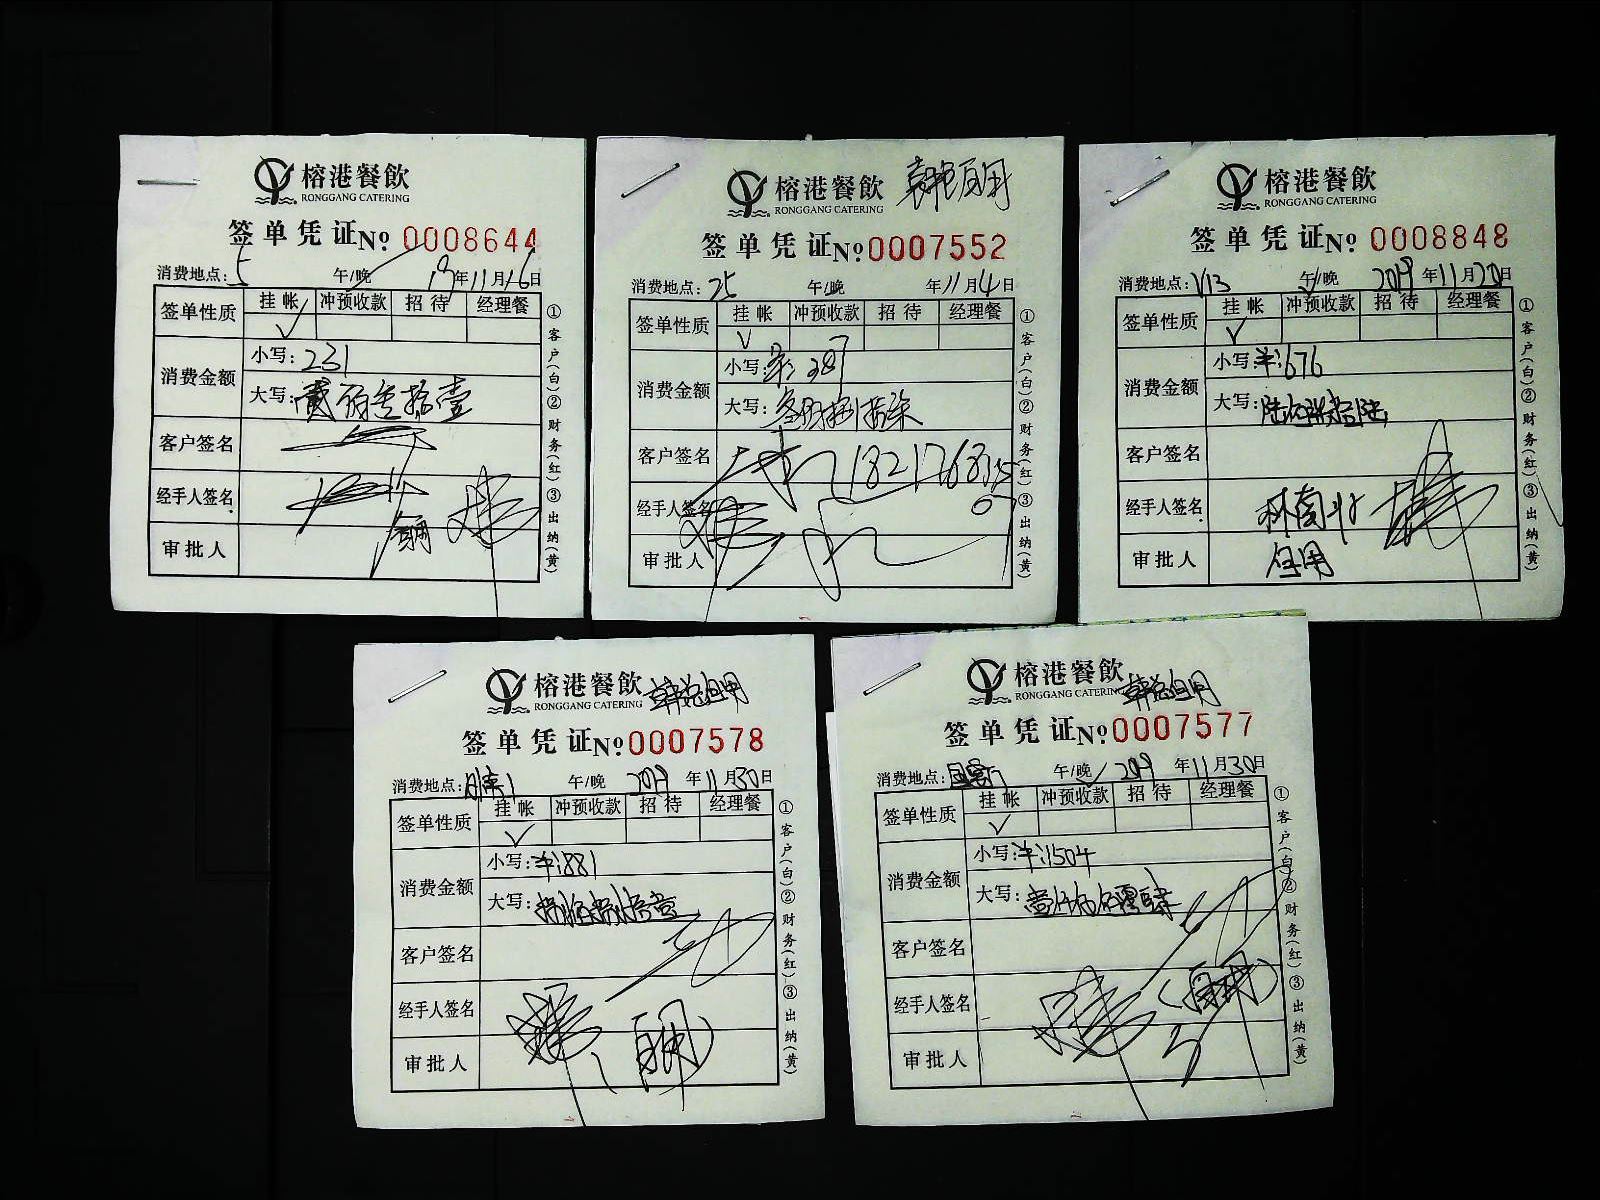 榕港餐飲
RONGGANG CATERING
签单凭证№ 0008644
消费地点: 5 午/晚 19年11月16日
签单性质 挂帐 冲预收款 招待 经理餐
✓
消费金额 小写: 231
大写: 贰佰叁拾壹
客户签名
经手人签名
审批人
①客户(白)②财务(红)③出纳(黄)
榕港餐飲
RONGGANG CATERING
签单凭证№ 0007552
消费地点: 25 午/晚 年11月4日
签单性质 挂帐 冲预收款 招待 经理餐
✓
消费金额 小写: ¥: 387
大写: 叁佰捌拾柒
客户签名
经手人签名
审批人
①客户(白)②财务(红)③出纳(黄)
榕港餐飲
RONGGANG CATERING
签单凭证№ 0008848
消费地点: V13 午/晚 2019年11月20日
签单性质 挂帐 冲预收款 招待 经理餐
✓
消费金额 小写: ¥: 676
大写: 陆佰柒拾陆
客户签名
经手人签名
审批人 自用
①客户(白)②财务(红)③出纳(黄)
榕港餐飲 韩总自用
RONGGANG CATERING
签单凭证№ 0007578
消费地点: 午/晚 2019年11月30日
签单性质 挂帐 冲预收款 招待 经理餐
✓
消费金额 小写: ¥: 881
大写: 捌佰捌拾壹
客户签名
经手人签名
审批人 (自用)
①客户(白)②财务(红)③出纳(黄)
榕港餐飲 韩总自用
RONGGANG CATERING
签单凭证№ 0007577
消费地点: 午/晚 2019年11月30日
签单性质 挂帐 冲预收款 招待 经理餐
✓
消费金额 小写: ¥: 1504
大写: 壹仟伍佰零肆
客户签名
经手人签名 (自用)
审批人
①客户(白)②财务(红)③出纳(黄)